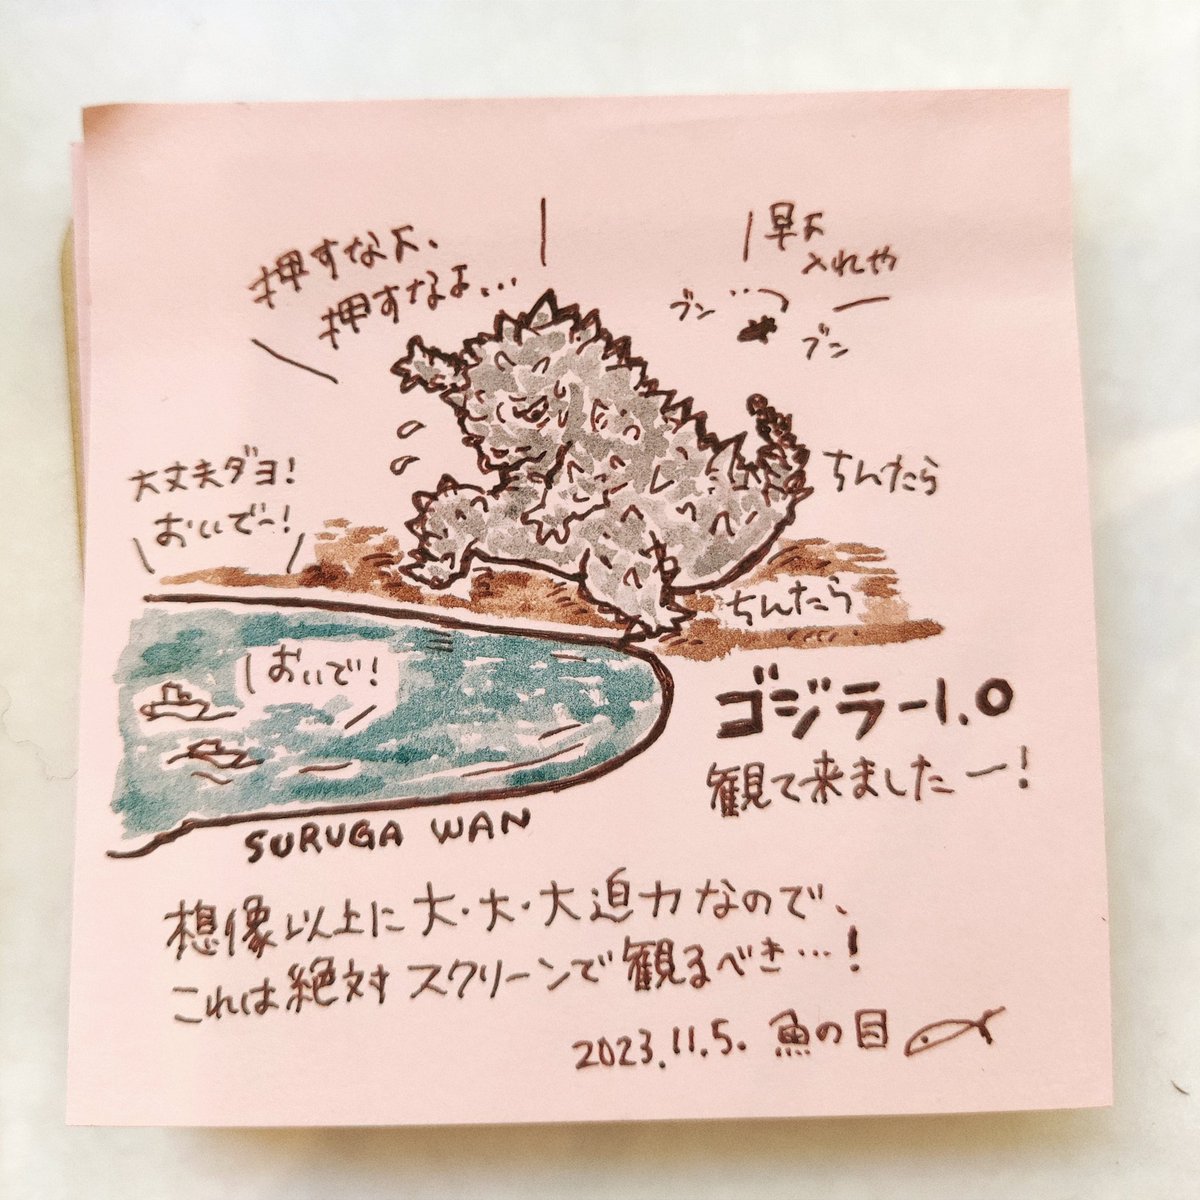 押すなよ、
押すなよ…
早よ
入れや
ブン
ブン
大丈夫ダヨ!
おいでー!
ちんたら
ちんたら
おいで!
ゴジラ-1.0
観て来ましたー!
SURUGA WAN
想像以上に大・大・大迫力なので、
これは絶対スクリーンで観るべき…!
2023.11.5. 魚の目